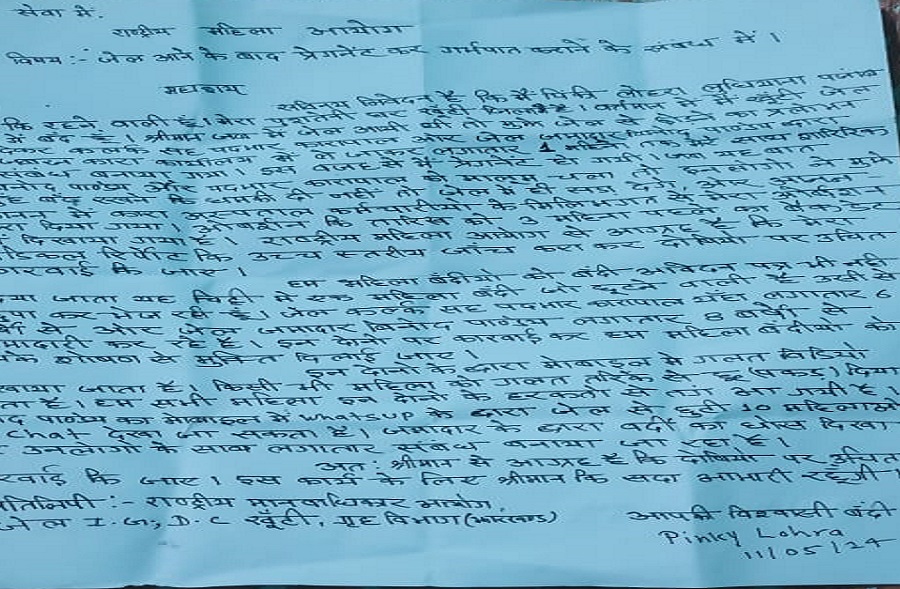 सेवा में.
राष्ट्रीय महिला आयोग
विषय :- जेल आने के बाद प्रेगनेंट कर गर्भपात कराने के संबंध में ।
महाशय
सविनय निवेदन है कि मैं पिंकी लोहरा लुधियाना पंजाब
कि रहने वाली हूँ। मेरा घर खूँटी जिला है। वर्तमान में मैं खूँटी जेल
में बंद हूँ। श्रीमान जब मैं जेल आयी थी तो मुझे जेल से छोटने का प्रलोभन
देकर क्लर्क सह पदभार कारापाल और जेल जमादार विनोद पाण्डेय द्वारा
कारा कार्यालय में ले जाकर लगातार 1 महिने तक मेरे साथ शारिरिक
संबंध बनाया गया। इस वजह से मैं प्रेगनेंट हो गयी। जब यह बात
पाण्डेय और पदभार कारापाल को मालूम चला तो इनलोगो ने मुझे
बंद रखने कि धमकी दी नही तो जेल में ही सड़ा देंगे, और
में कारा अस्पताल कर्मचारीयो के मिलिभगत से मेरा ऑर्बशन
करा दिया गया। ऑर्बशन कि तारिख को 3 महिना पहले का बैकडेट
दिखाया गया है। राष्ट्रीय महिला आयोग से आग्रह है कि मेरा
मेडिकल रिर्पोट कि उच्च स्तरीय जांच करा कर दोषियो पर उचित
कारवाई कि जाए।
हम महिला बंदीयो को बंदी आवेदन पत्र भी नही
दिया जाता यह चिट्ठी मैं एक महिला बंदी जो छूटने वाली है उसी से
छुपा कर भेज रही हूँ। जेल क्लर्क सह पदभार कारापाल यहां लगातार 6
से और जेल जमादार विनोद पाण्डेय लगातार 8 वर्षो से
जमादारी कर रहे है। इन दोनो पर कारवाई कर हम महिला बंदीयो को
इनके शोषण से मुक्ति दिलाई जाए।
इन दोनो के द्वारा मोबाइल में गलत विडियो
दिखाया जाता है। किसी भी महिला को गलत तरिके से छू (पकड़) दिया
जाता है। हम सभी महिला इन दोनो के हरकतो से तंग आ गयी है।
पाण्डेय का मोबाइल में whatsup के द्वारा जेल से छुटी 10 महिलाओ
chat देखा जा सकता है। जमादार के द्वारा वर्दी का धौस दिखा
उनलोगो के साथ लगातार संबंध बनाया जा रहा है।
अतः श्रीमान से आग्रह है कि दोषियो पर उचित
कारवाई कि जाए। इस कार्य के लिए श्रीमान कि सदा आभारी रहूँगी।
प्रतिलिपी :- राष्ट्रीय मानवाधिकार आयोग,
जेल I.G., D.C खूँटी, गृह विभाग (झारखण्ड)
आपकी विश्वासी बंदी
Pinky Lohra
11/05/24